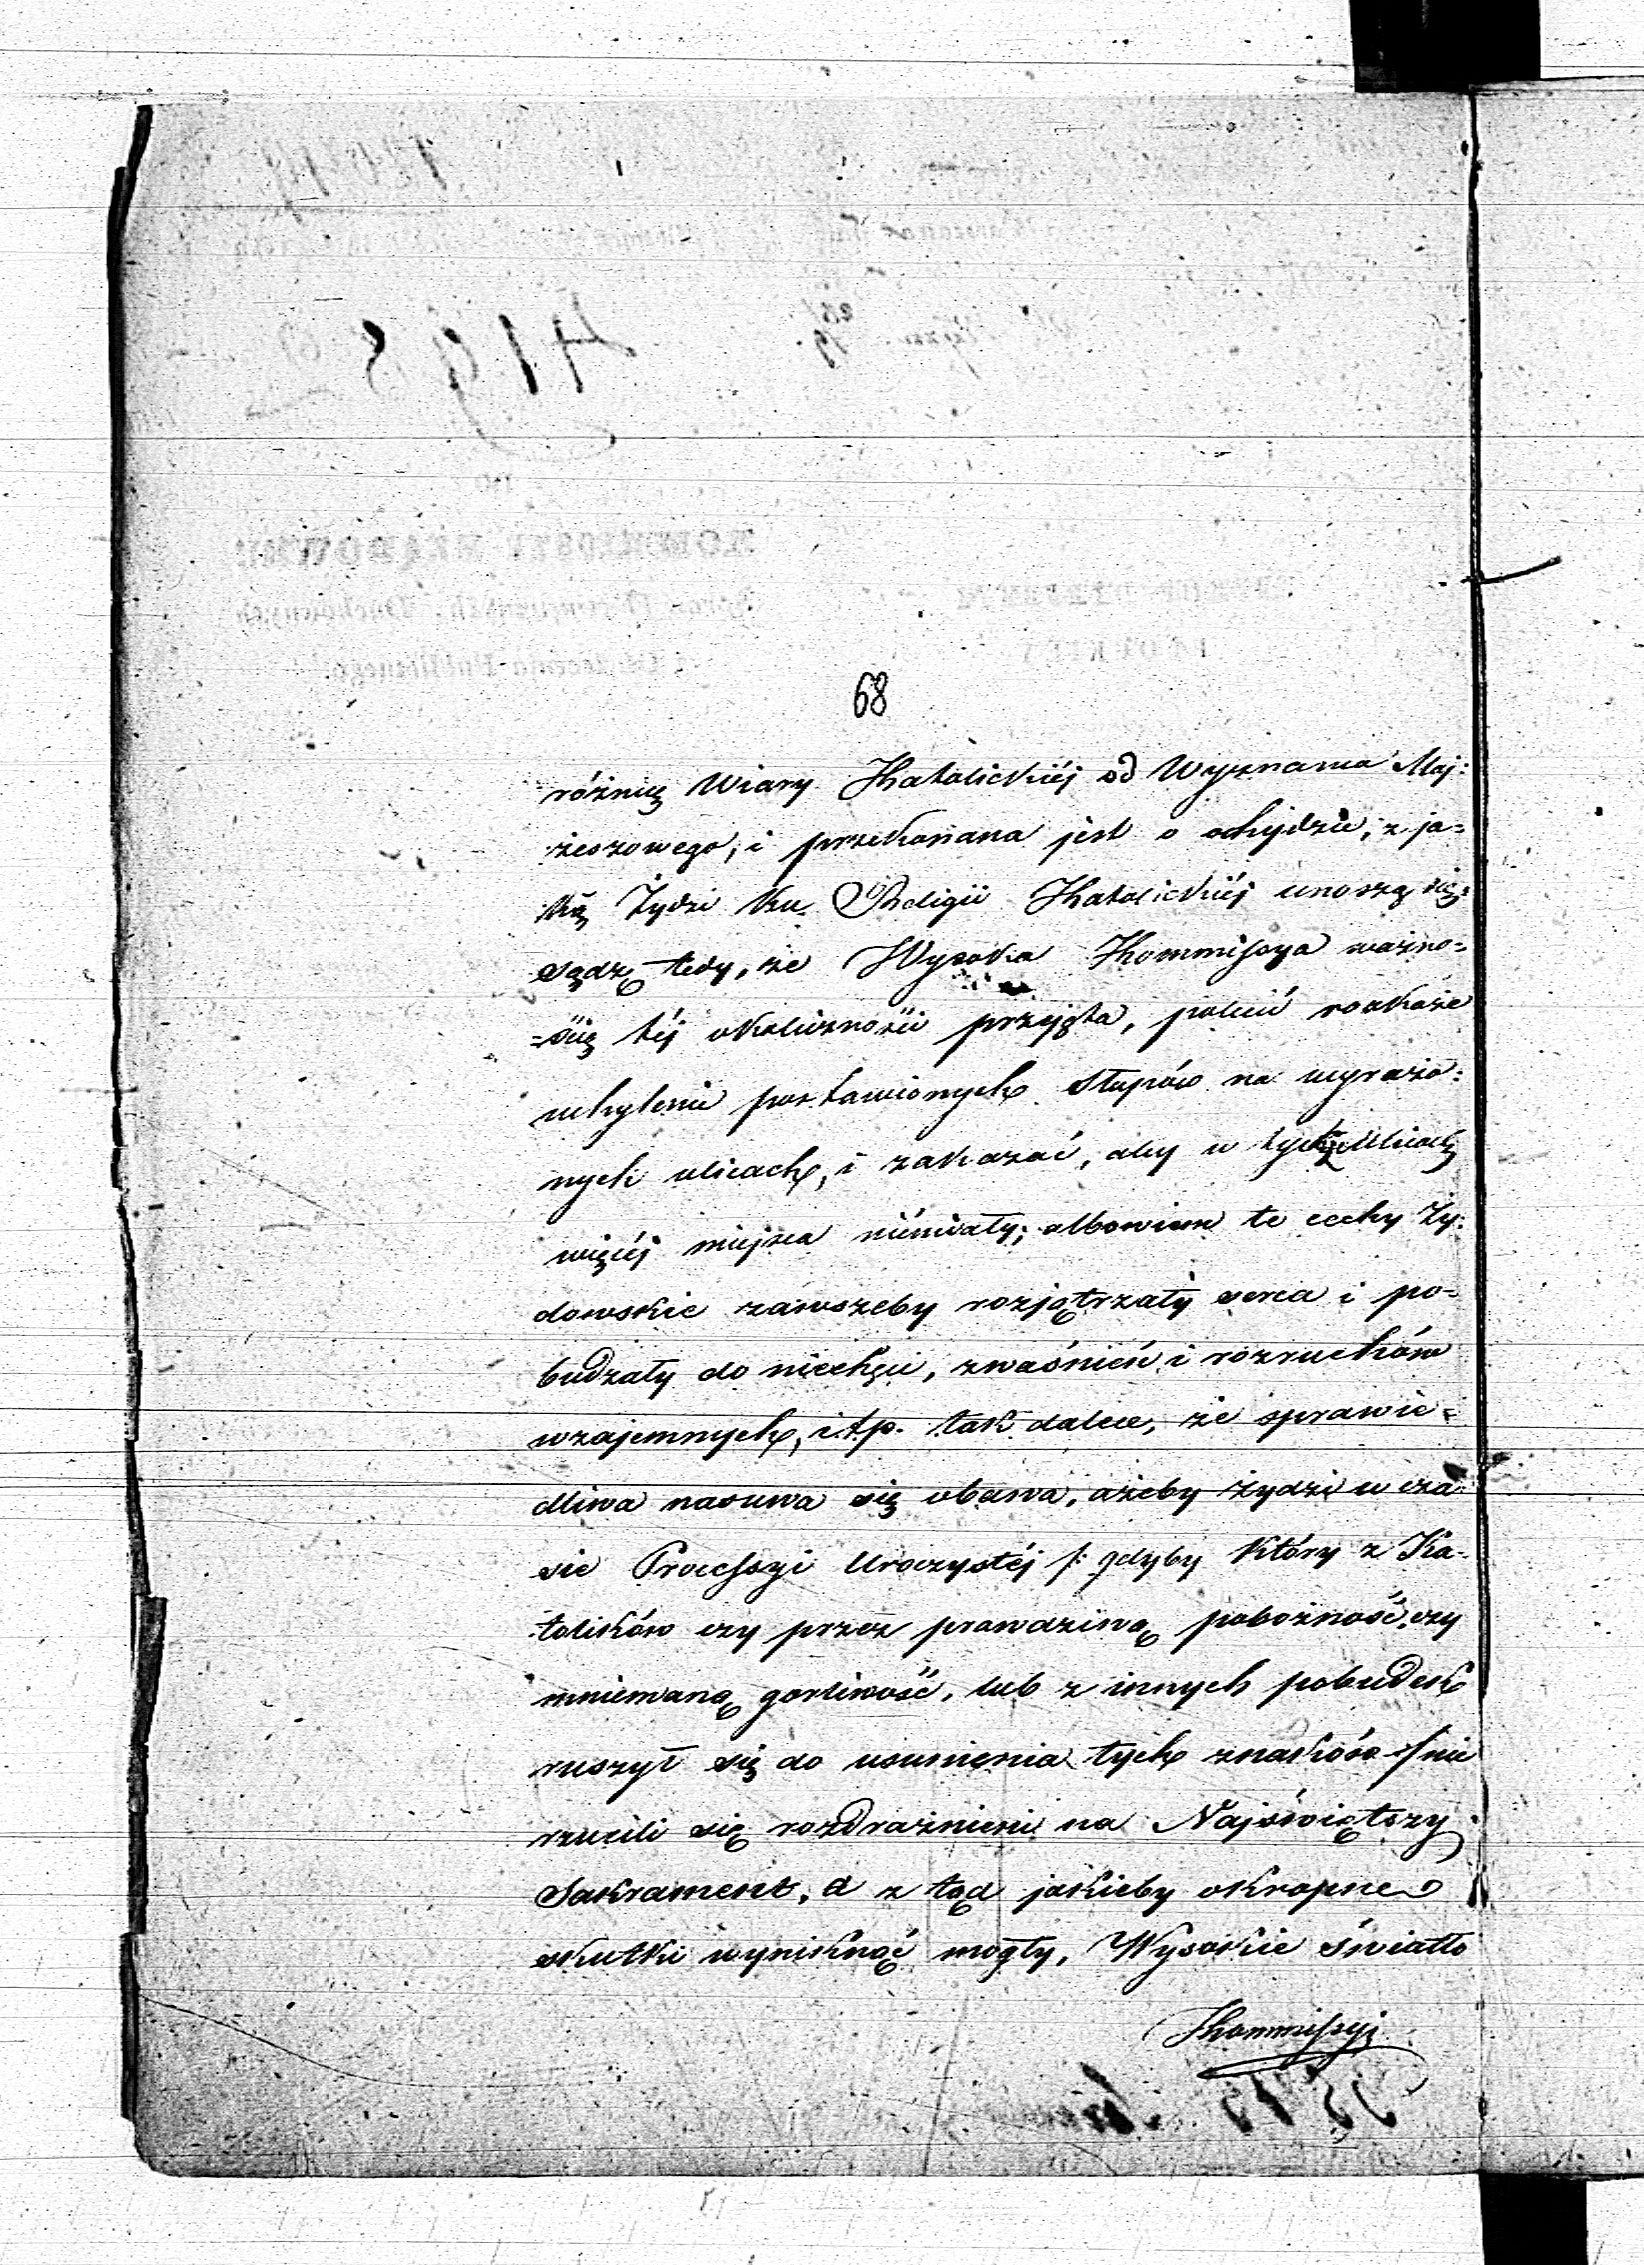 68
różnicę Wiary Katolickiéj od Wyznania Moj:
żeszowego, i przekonana jest o ochydzie, z ja=
ką Żydzi ku Religii Katolickiéj unoszą się:
sądzę tedy, że Wysoka Kommissya ważno=
=ścią téj okoliczności przejęta, polecić rozkaże
uchylenie postawionych słupów na wyrażo:
nych ulicach, i zakazać, aby w tychże Ulicach
więcéj miejsca niemiały; albowiem te cechy Ży:
dowskie zawszeby rozjątrzały serca i po=
budzały do niechęci, zwaśnień i rozruchów
wzajemnych, itp. tak dalece, że sprawie=
dliwa nasuwa się obawa, ażeby żydzi w cza
sie Processyi Uroczystéj /: gdyby który z Ka=
tolików czy przez prawdziwą pobożność, czy
mniemaną gorliwość, lub z innych pobudek
ruszył się do usunienia tych znaków :/ nie
rzucili się rozdraźnieni na Najświętszy
Sakrament, a z tąd jakieby okropne
skutki wyniknąć mogły, Wysokie światło
Kommissyi